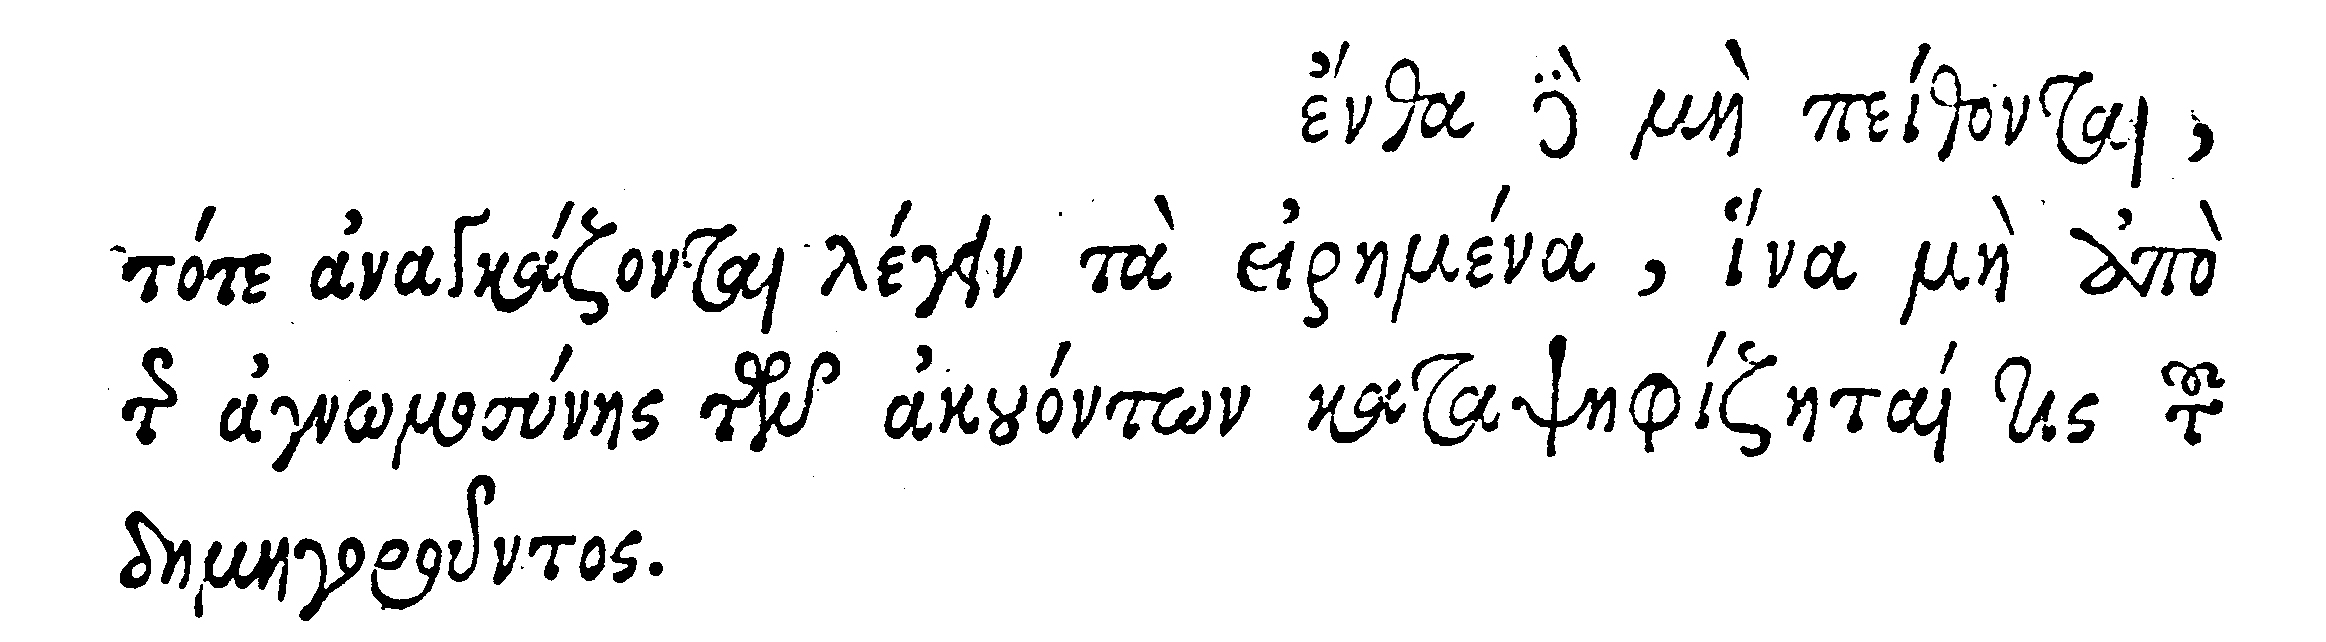 ἔνθα δὲ μὴ πείθονται,
τότε ἀναγκάζονται λέγειν τὰ εἰρημένα, ἵνα μὴ ἀπὸ
τῆς ἀγνωμοσύνης τῶν ἀκουόντων καταψηφίζηταί τις τοῦ
δημηγοροῦντος.